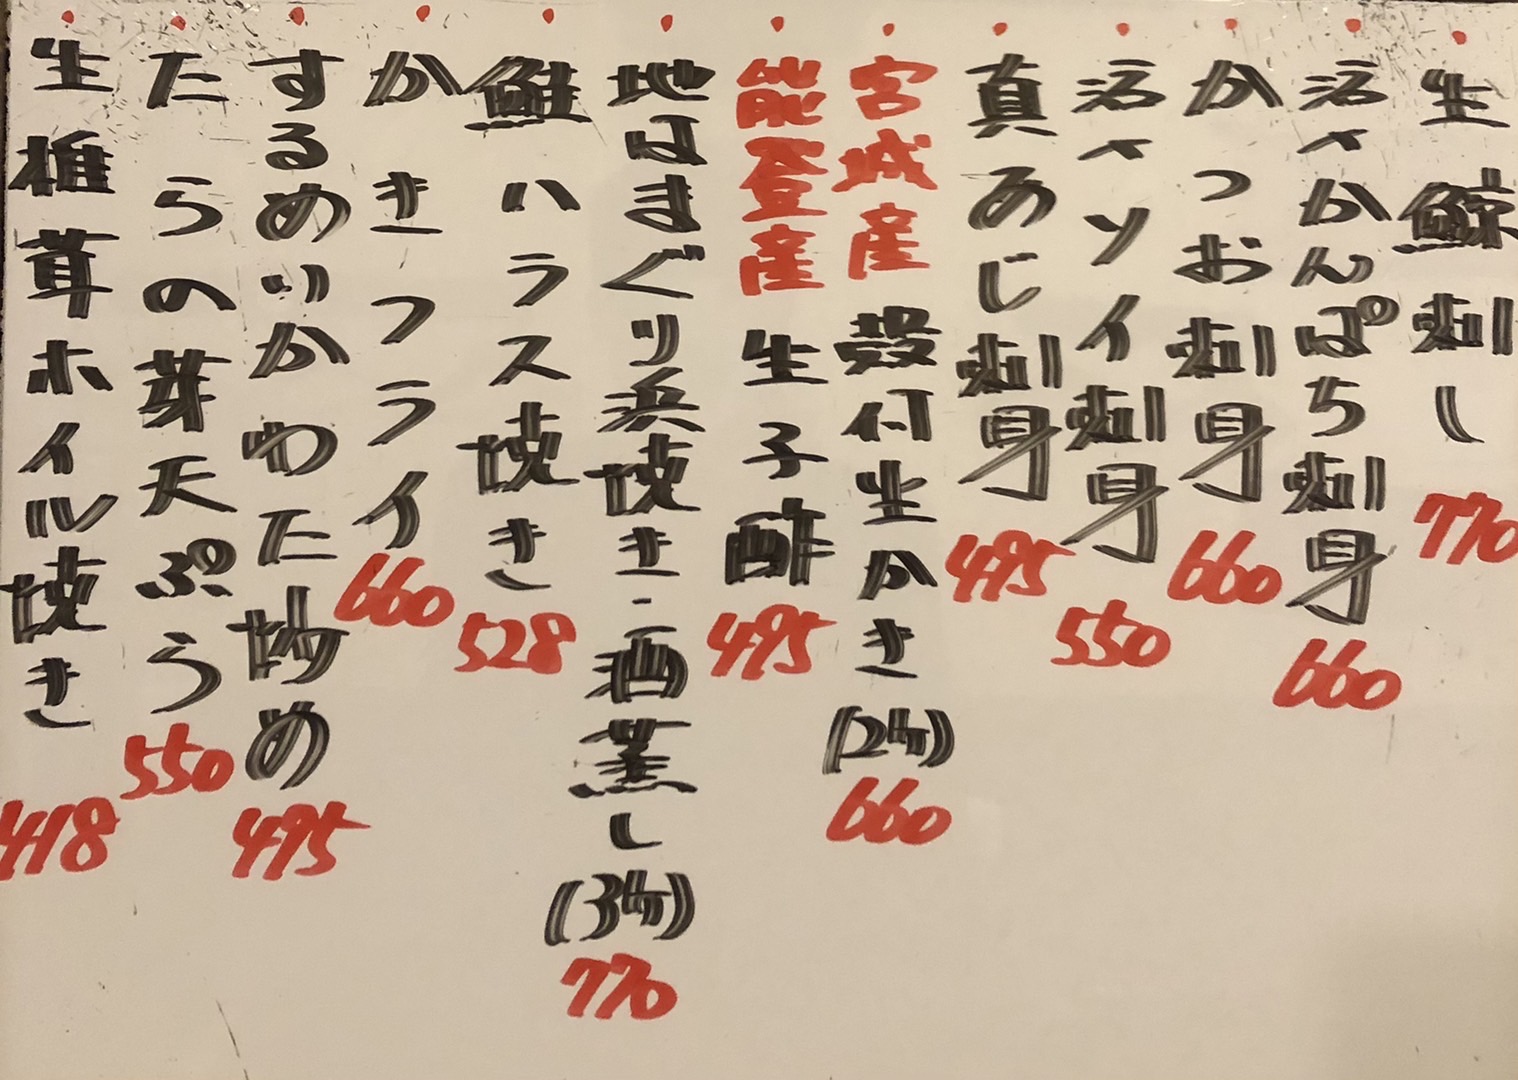 生鯨刺し 770
活〆かんぱち刺身 660
かつお刺身 660
活〆ソイ刺身 550
真あじ刺身 495
宮城産 殻付生かき(2ケ) 660
能登産 生子酢 495
地はまぐり浜焼き・酒蒸し(3ケ) 770
鮭ハラス焼き 528
かきフライ 660
するめいかわた炒め 495
たらの芽天ぷら 550
生椎茸ホイル焼き 418